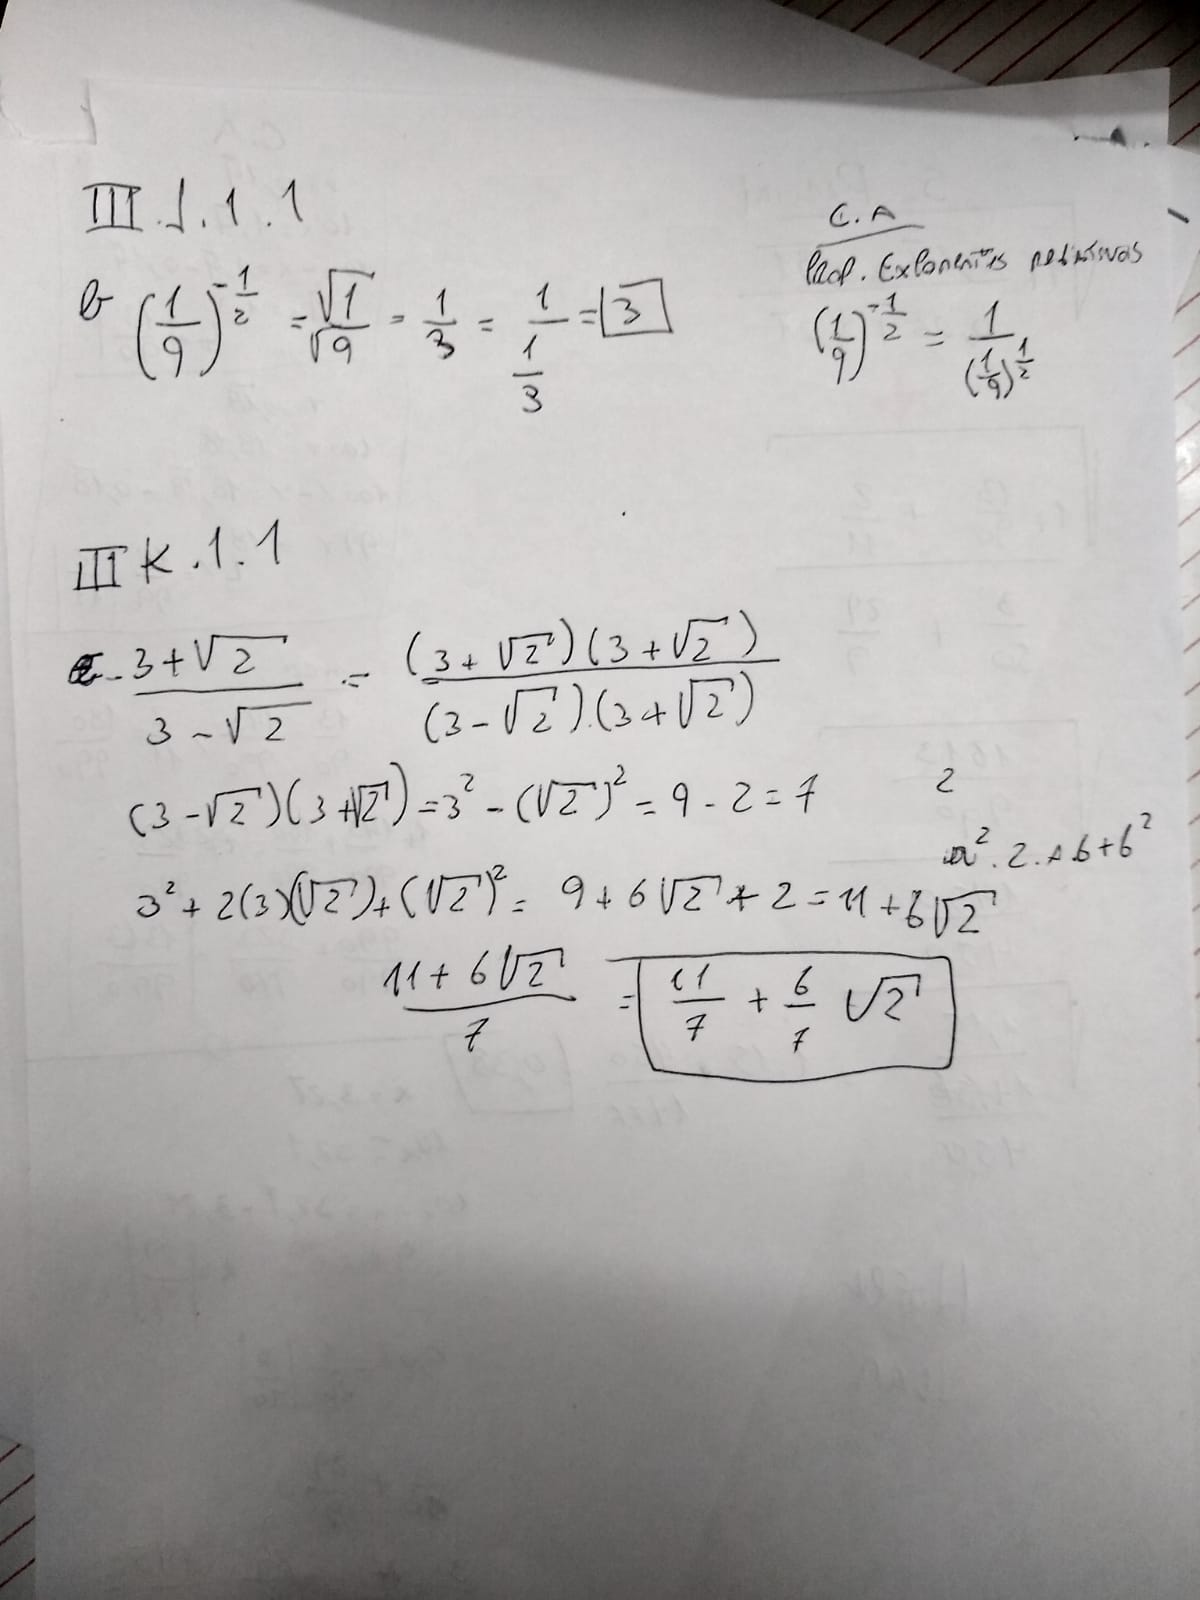 III.J.1.1
b (1/9)^-1/2 = √1/√9 = 1/3 = 1/(1/3) = 3
C.A
Prop. Exponentes negativos
(1/9)^-1/2 = 1/(1/9)^1/2
III K.1.1
3+√2/3-√2 = (3+√2)(3+√2)/(3-√2).(3+√2)
(3-√2)(3+√2)=3²-(√2)²=9-2=7
2
a².2.Ab+b²
3²+2(3)(√2)+(√2)²=9+6√2+2=11+6√2
11+6√2/7 = 11/7 + 6/7 √2